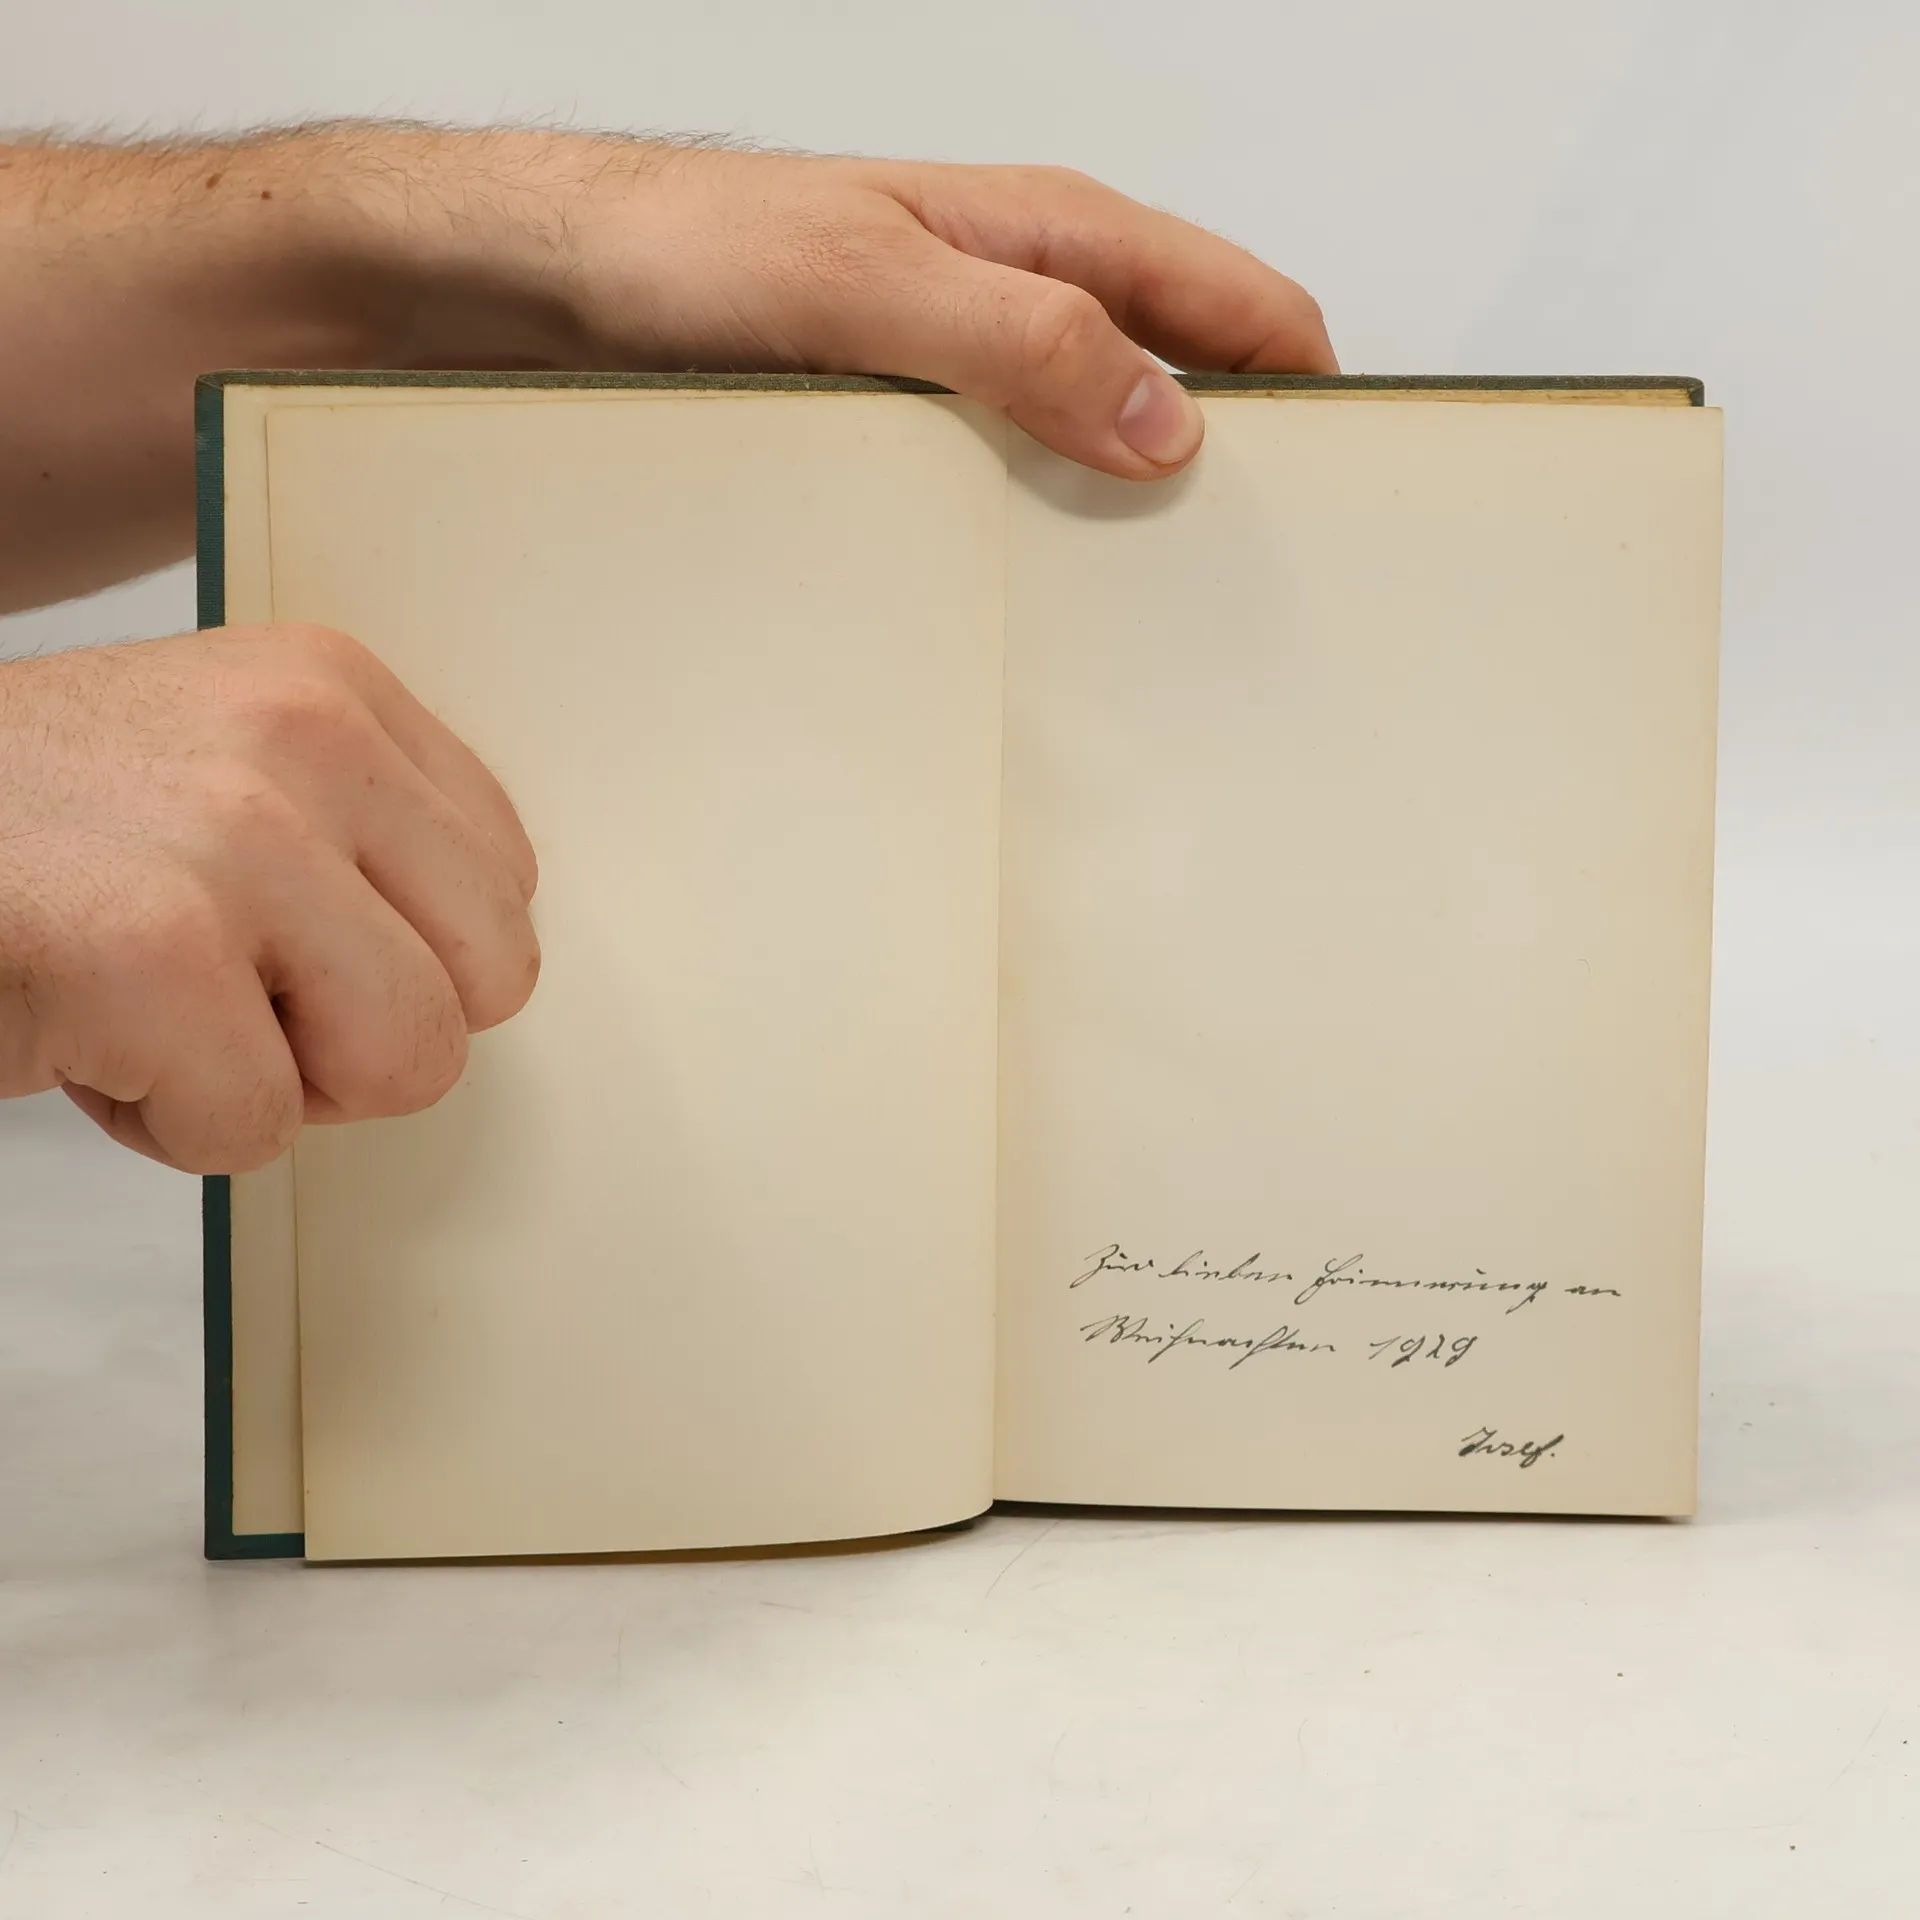 Zur lieben Erinnerung an
Weihnachten 1929
Josef.